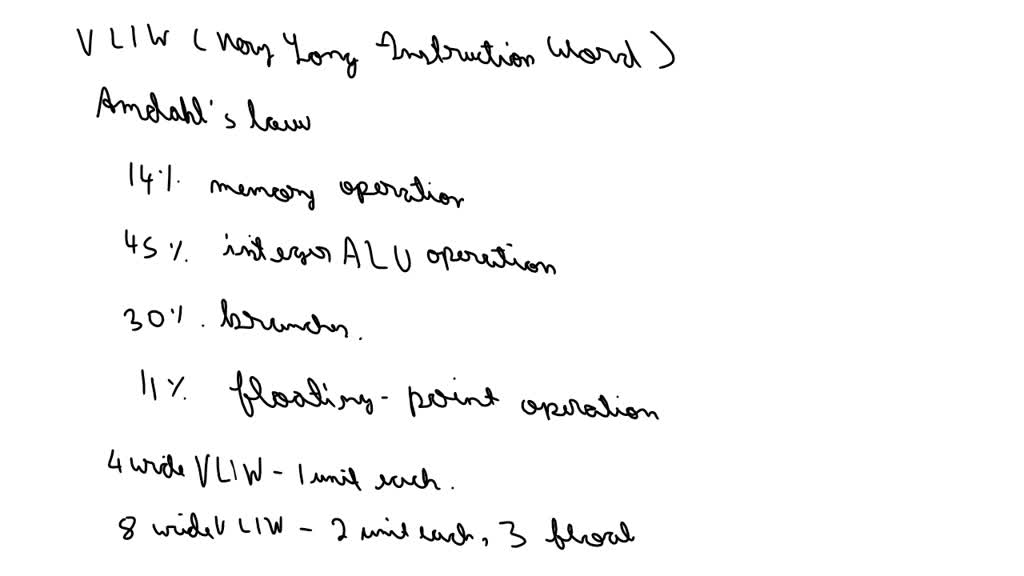 VLIW (Very Long Instruction Word)
Amdahl's law
14% memory operation
45% integer ALU operation
30% branches.
11% floating-point operation
4 wide VLIW - 1 unit each.
8 wide VLIW - 2 unit each, 3 float